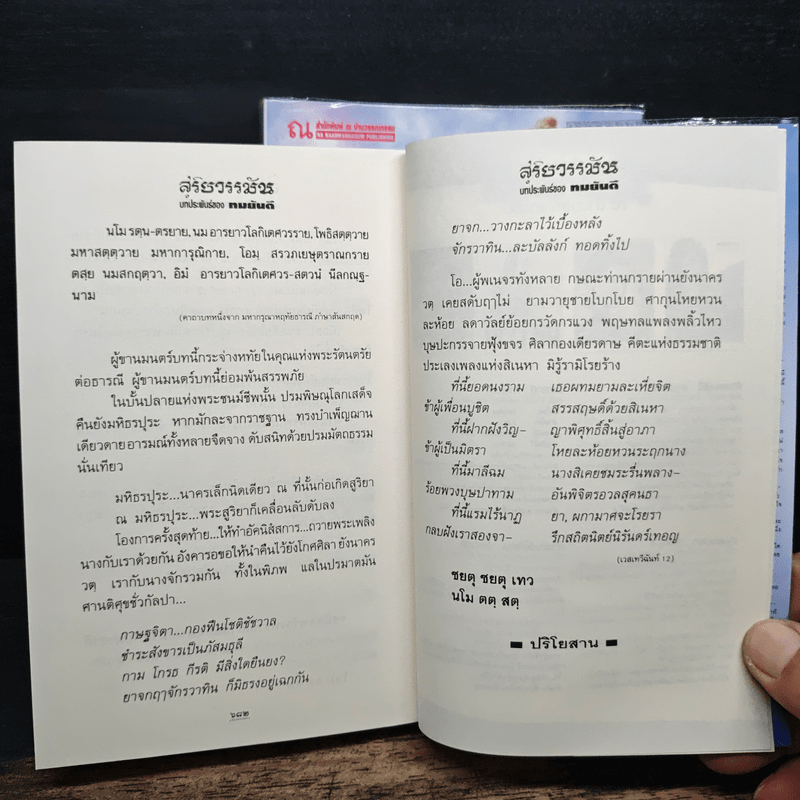 ณ สำนักพิมพ์ ณ บ้านวรรณกรรม
NA BAANWANNAGUM PUBLISHING
สุริยวรรมัน
บทประพันธ์ของ ทมยันตี
นโม รตฺน-ตรยาย, นม อารยาวโลกิเตศวรราย, โพธิสตฺตฺวาย
มหาสตฺตฺวาย มหาการุณิกาย, โอมฺ สรวภเยษุตราณกราย
ตสฺย นมสกฤตฺวา, อิมํ อารยาวโลกิเตศวร-สตวนํ นีลกณฺฐ-
นาม
(คาถาบทหนึ่งจาก มหากรุณาหฤทัยธารณี ภาษาสันสกฤต)
ผู้ขานมนตร์บทนี้กระจ่างหทัยในคุณแห่งพระรัตนตรัย
ต่อธารณี ผู้ขานมนตร์บทนี้ย่อมพ้นสรรพภัย
ในบั้นปลายแห่งพระชนม์ชีพนั้น ปรมพิษณุโลกเสด็จ
คืนยังมหิธรปุระ หากมักละจากราชฐาน ทรงบำเพ็ญฌาน
เดียวดายอารมณ์ทั้งหลายจืดจาง ดับสนิทด้วยปรมมัตถธรรม
นั่นเทียว
มหิธรปุระ...นาครเล็กนิดเดียว ณ ที่นั้นก่อเกิดสุริยา
ณ มหิธรปุระ...พระสุริยาก็เคลื่อนลับดับลง
โองการครั้งสุดท้าย...ให้ทำอัคนิส์สการ...ถวายพระเพลิง
นางกับเราด้วยกัน อังคารอขอให้นำคืนไว้ยังโกศศิลา ยังนาคร
วตฺ เรากับนางจักรวมกัน ทั้งในพิภพ แลในปรมาตมัน
ศานติสุขชั่วกัลปา...
กาษฐจิตา...กองฟืนโชติชัชวาล
ชำระสังขารเป็นภัสมธุลี
กาม โกรธ กีรติ มีสิ่งใดยืนยง?
ยาจกฤๅจักรวาทิน ก็มิธรงอยู่เฉกกัน
๖๘๒
สุริยวรรมัน
บทประพันธ์ของ ทมยันตี
ยาจก...วางกะลาไว้เบื้องหลัง
จักรวาทิน...ละบัลลังก์ ทอดทิ้งไป
โอ...ผู้พเนจรทั้งหลาย กษณะท่านกรายผ่านยังนาคร
วตฺ เคยสดับฤๅไม่ ยามวายุชายโบกโบย ศากุนโหยหวน
ละห้อย ลดาวัลย์ย้อยกรวัดกรแวง พฤษทลแพลงพลิ้วไหว
บุษปะกรรจายฟุ้งขจร ศิลากองเดียรดาษ คีตะแห่งธรรมชาติ
ประเลงเพลงแห่งสิเนหา มิรู้รามิโรยร้าง
ที่นี้ยอดนงราม เธอผทมยามละเหี่ยจิต
ข้าผู้เพื่อนบูชิต สรรสฤษดิ์ด้วยสิเนหา
ที่นี้ฝากฝังวิญ- ญาพิศุทธิ์สิ้นสู่อาภา
ข้าผู้เป็นมิตรา โหยละห้อยหวนระฤกนาง
ที่นี้มาลีฉม นางสิเคยชมระรื่นพลาง-
ร้อยพวงบุษปาทาม อันพิจิตรอวลสุคนธา
ที่นี้แรมไร้นาฏ ยา, ผกามาศจะโรยรา
กลบฝังเราสองจา- รึกสถิตนิตย์นิรันดร์เทอญ
(เวสเทวีฉันท์ 12)
ชยตุ ชยตุ เทว
นโม ตตฺ สตฺ
ปริโยสาน